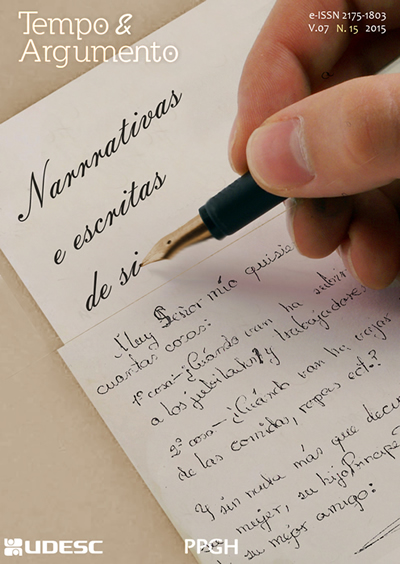 Tempo &
Argumento
e-ISSN 2175-1803
V.07 N. 15 2015
Narrrativas
e escritas
de si
Muy Señor mio quisie
cuantas cosas:
1ª cosa-¿Cuándo van ha subir
a los jubilatas y trabajadores
2ª cosa-¿Cuándo van ha vajar
de las comidas, ropas ect.?
Y sin nada más que decir
mujer, su hijo Principe
su mejor amigo:
UDESC
PPGH